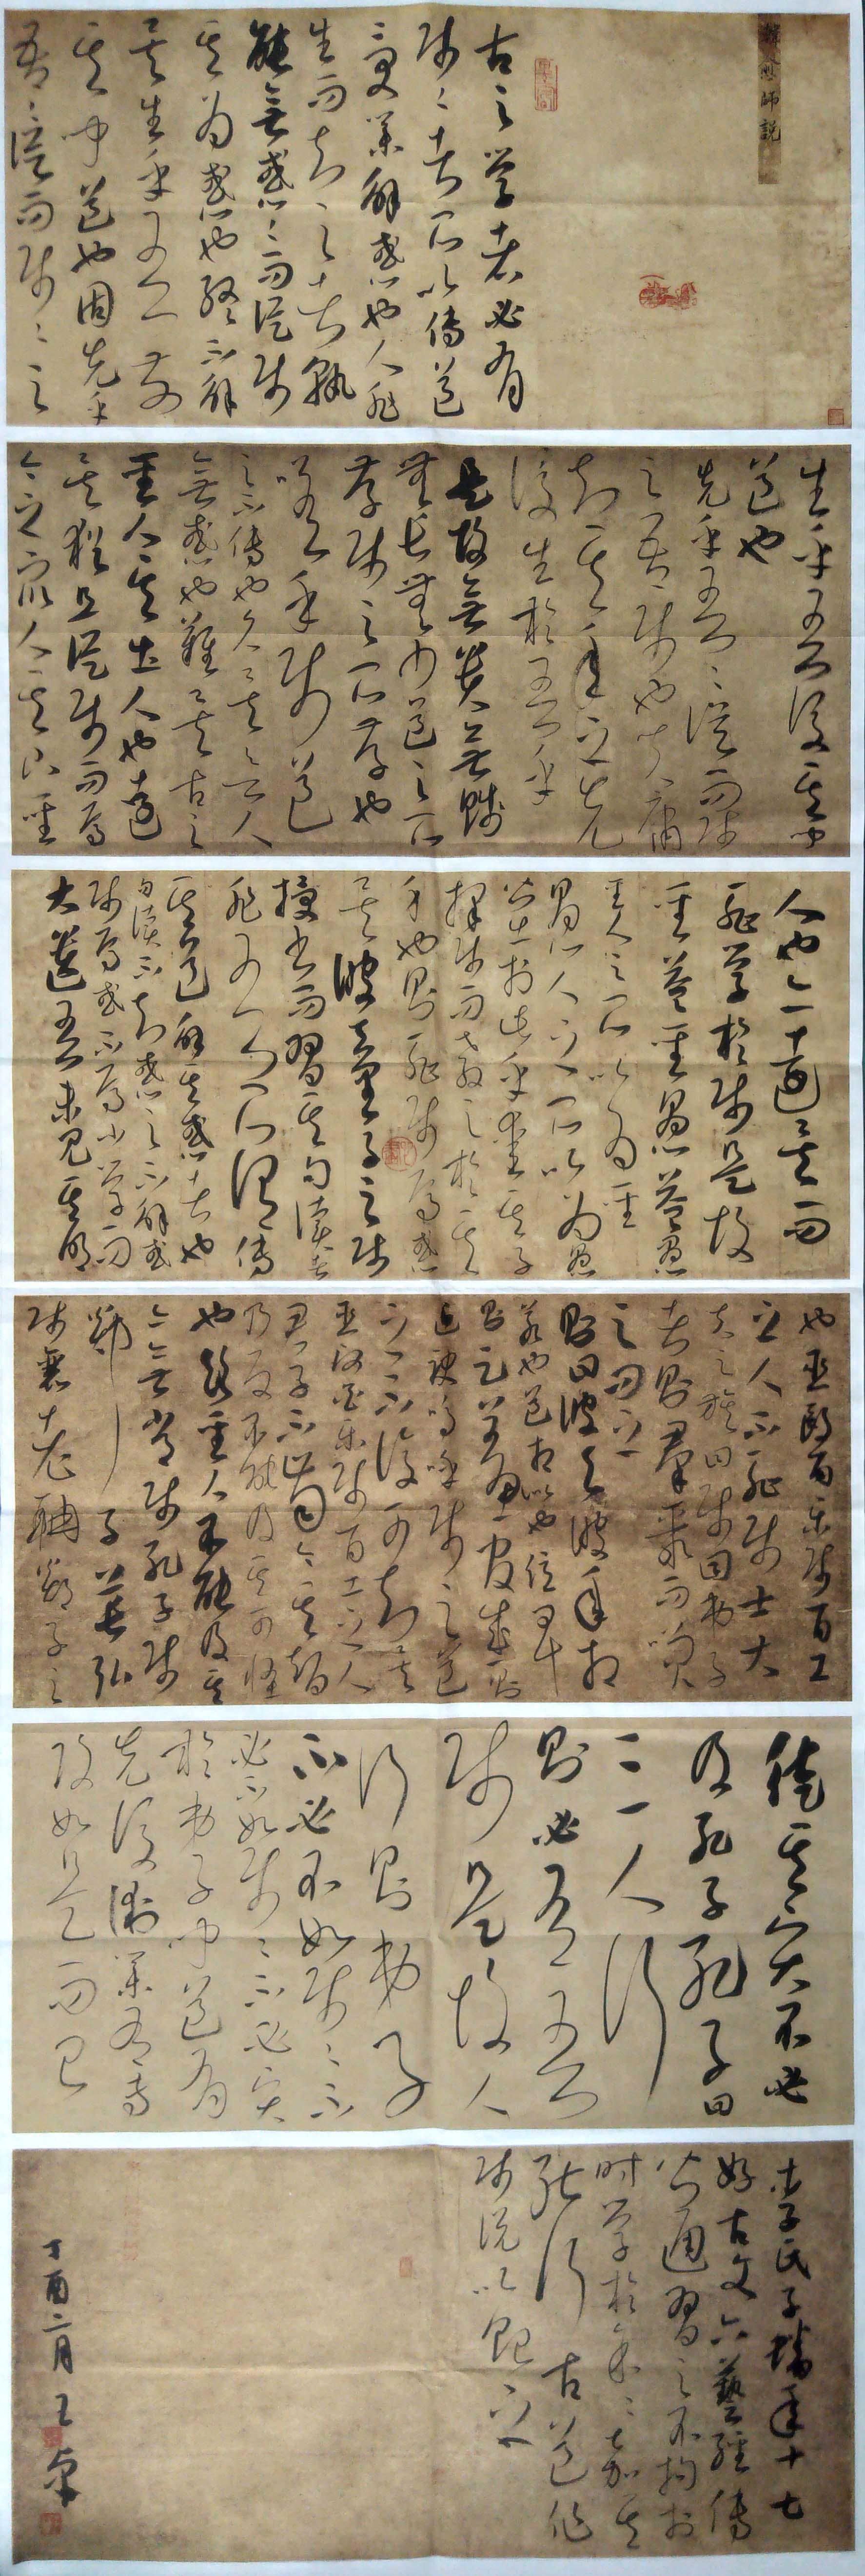 韓愈師說
古之学者必有
师々者所以传道
受業解惑也人非
生而知之者孰
能無惑々而從师
其为惑也終不解
矣生乎吾前
其闻道也固先乎
吾々從而师之
生乎吾後其闻
道也
先乎吾々從而师
之吾师也夫庸
知其年之先
後生於吾乎
是故無貴無賤
無長無少道之所
存师之所存也
嗟乎师道
之不传也久矣欲人
無惑也難矣古之
聖人其出人也遠
矣猶且從师而焉
今之眾人其下聖
人也亦遠矣而
耻学於师是故
聖益聖愚益愚
聖人之所以为聖
愚人之所以为愚
皆出於此乎愛其子
擇师而教之於其
身也则耻师焉惑
矣彼童子之师
授书而習其句讀者
非吾所谓传
其道解其惑者也
句讀不知惑之不解或
师焉或不焉小学而
大遺吾未見其明
也巫醫百乐师百工
之人不耻师士大
夫之族曰师曰弟子
者则羣聚而笑
之问之
则曰彼与彼年相
若也道相似也位卑
则足羞官盛则
近諛嗚呼师之道
之不復可知矣
巫醫乐师百工之人
君子不齒今其智
乃反不能及其可怪
也歟聖人不能及其
無常师孔子师
郯子萇弘
师襄老聃郯子之
徒其賢不必
及孔子孔子曰
三人行
则必有吾
师是故人
行则弟子
不必不如师々不
必不如师々不必賢
於弟子闻道有
先後術業有專
攻如是而已
李氏子蟠年十七
好古文六藝經传
皆通習之不拘於
时学於余々嘉其
能行古道作
师说以貽之
丁酉二月王